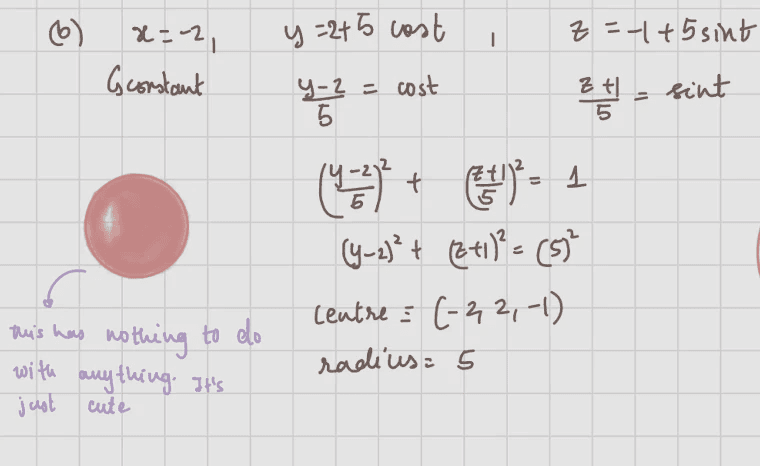 (b) x = -2, y = 2+5 cost, z = -1+5sint
↳constant (y-2)/5 = cost (z+1)/5 = sint
((y-2)/5)² + ((z+1)/5)² = 1
(y-2)² + (z+1)² = (5)²
centre ≡ (-2, 2, -1)
radius = 5
This has nothing to do
with anything. It's
just cute